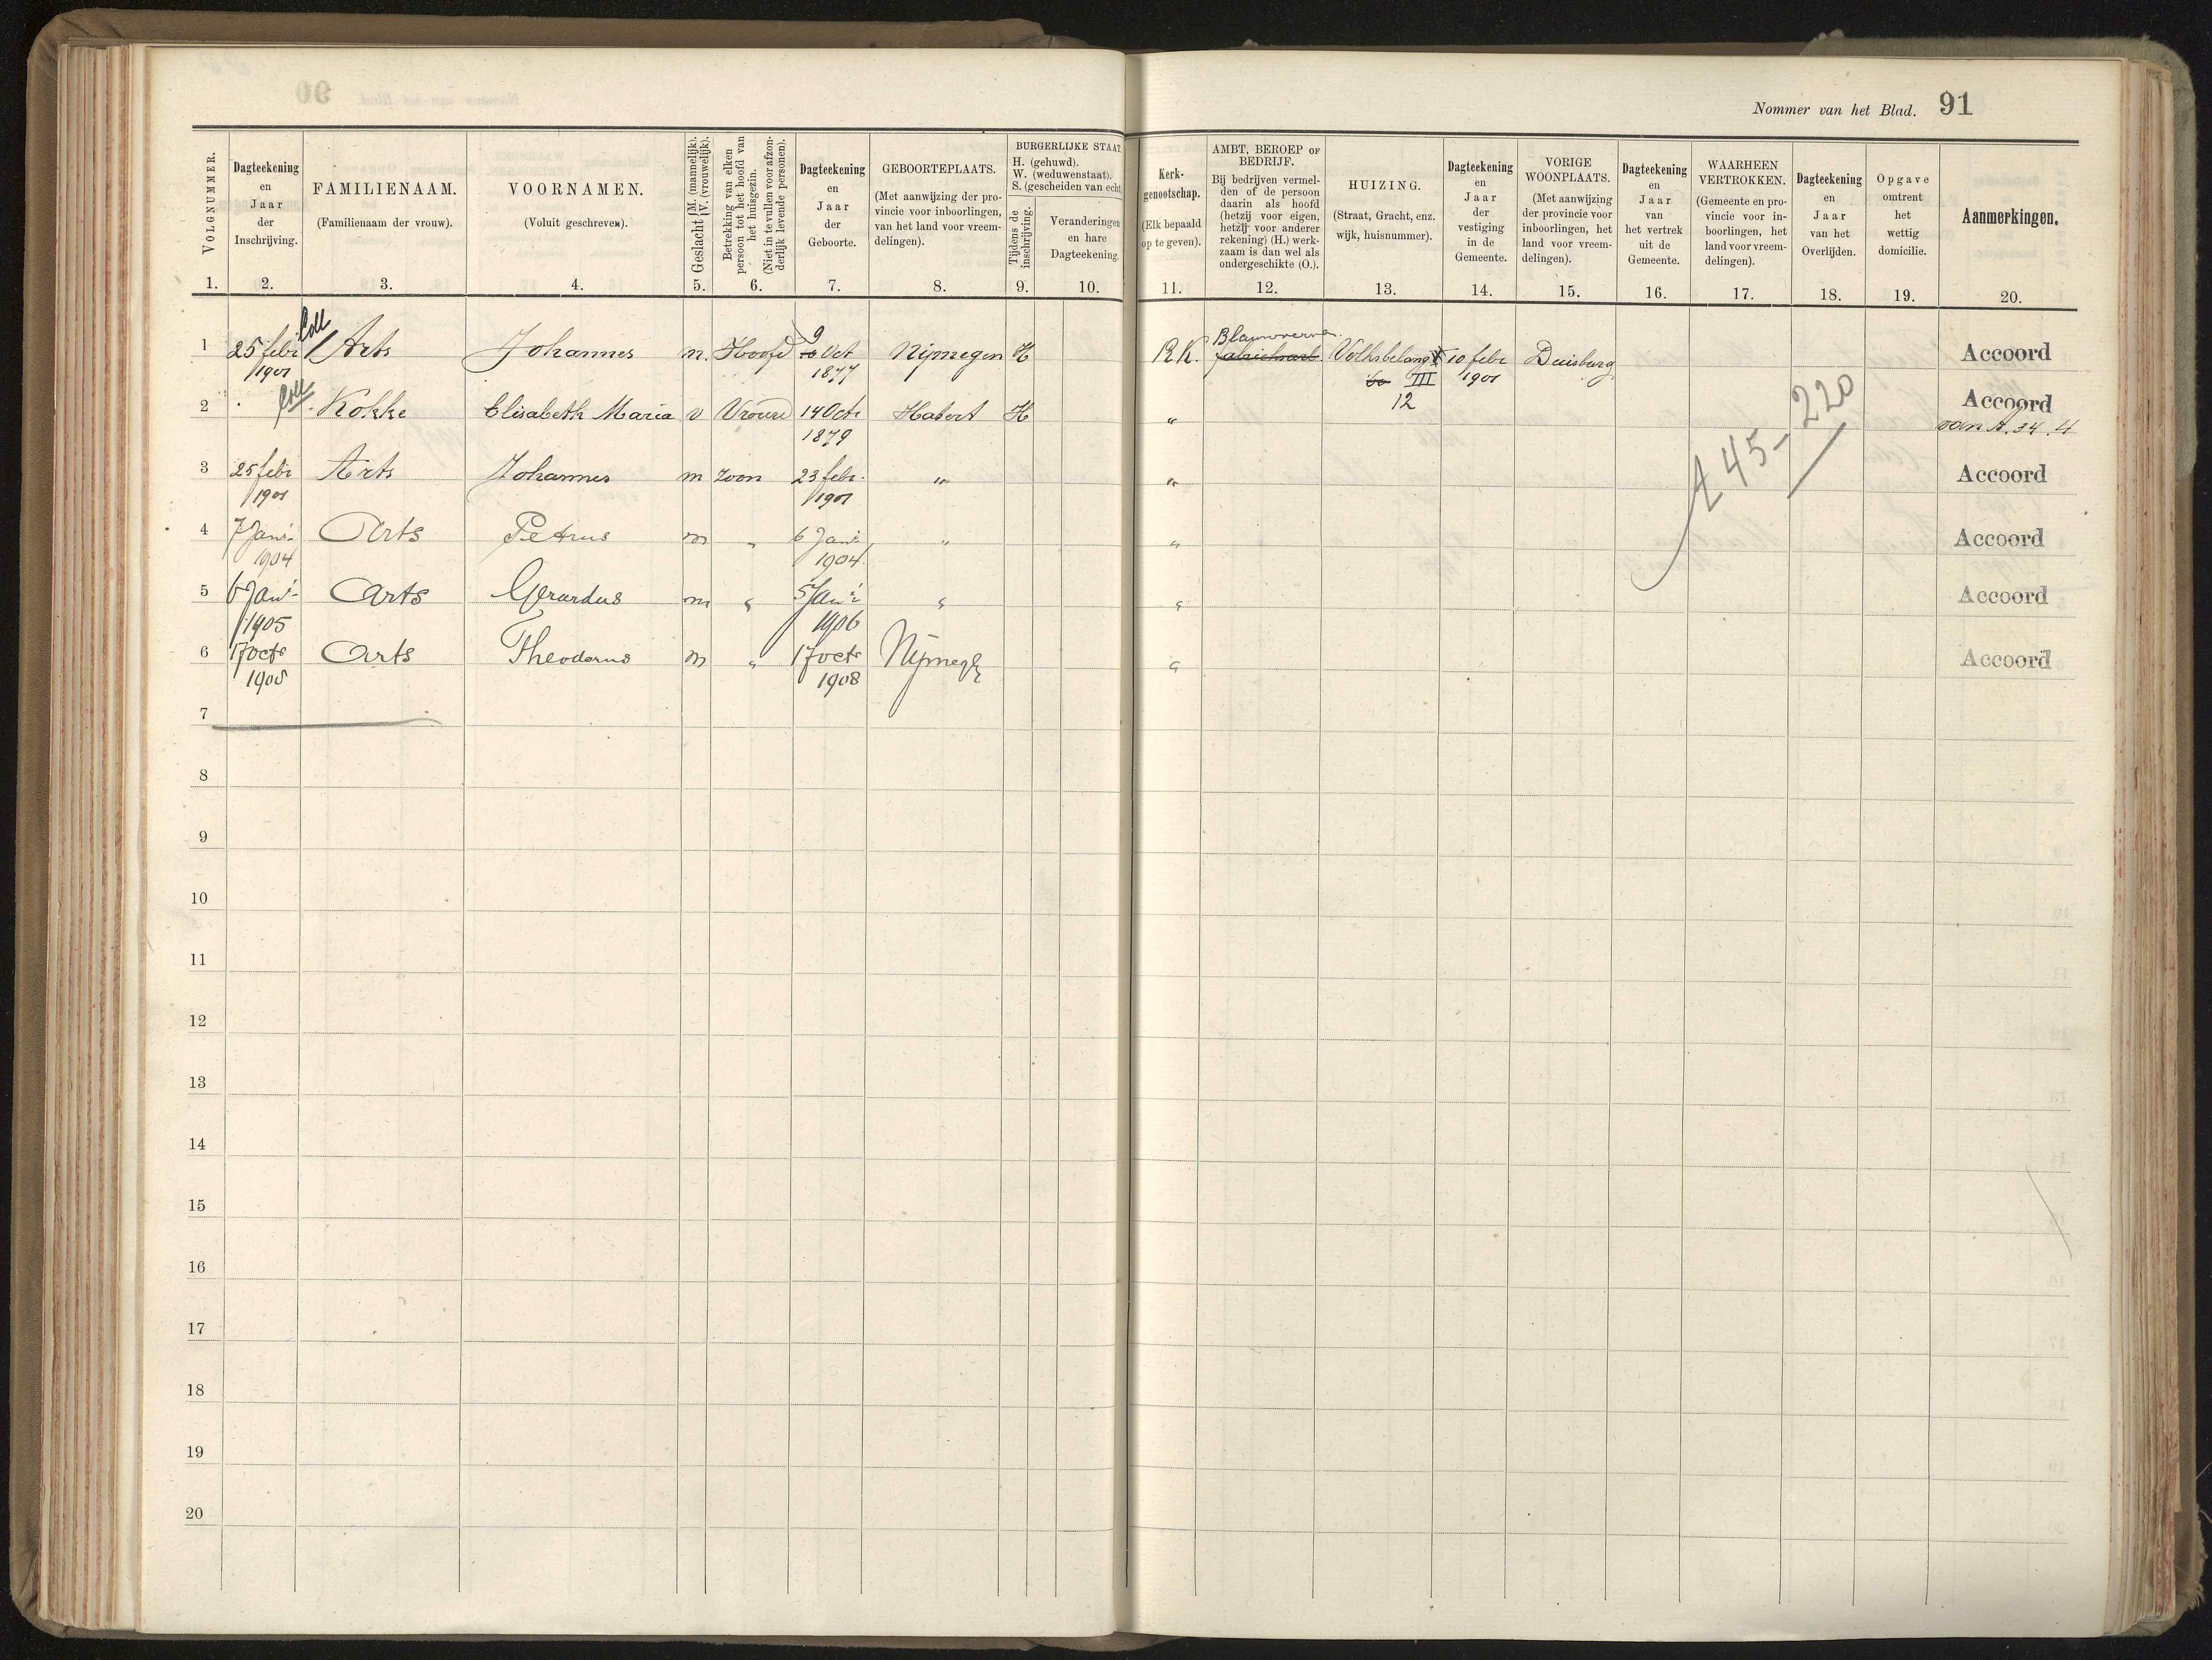 Nommer van het Blad. 91
VOLGNUMMER. 1.
Dagteekening en Jaar der Inschrijving. 2.
FAMILIENAAM. (Familienaam der vrouw). 3.
VOORNAMEN. (Voluit geschreven). 4.
Geslacht M. (mannelijk). V. (vrouwelijk). 5.
Betrekking van elken persoon tot het hoofd van het huisgezin. (Niet in te vullen voor afzonderlijk levende personen). 6.
Dagteekening en Jaar der Geboorte. 7.
GEBOORTEPLAATS. (Met aanwijzing der provincie voor inboorlingen, van het land voor vreemdelingen). 8.
BURGERLIJKE STAAT.
H. (gehuwd).
W. (weduwenstaat).
S. (gescheiden van echt
Tijdens de inschrijving. 9.
Veranderingen en hare Dagteekening. 10.
Kerkgenootschap. (Elk bepaald op te geven). 11.
AMBT, BEROEP OF BEDRIJF. Bij bedrijven vermelden of de persoon daarin als hoofd (hetzij voor eigen, hetzij voor anderer rekening) (H.) werkzaam is dan wel als ondergeschikte (O.). 12.
HUIZING. (Straat, Gracht, enz. wijk, huisnummer). 13.
Dagteekening en Jaar der vestiging in de Gemeente. 14.
VORIGE WOONPLAATS. (Met aanwijzing der provincie voor inboorlingen, het land voor vreemdelingen). 15.
Dagteekening en Jaar van het vertrek uit de Gemeente. 16.
WAARHEEN VERTROKKEN. (Gemeente en provincie voor inboorlingen, het land voor vreemdelingen). 17.
Dagteekening en Jaar van het Overlijden. 18.
Opgave omtrent het wettig domicilie. 19.
Aanmerkingen. 20.
1 25 febr 1901 Coll Arts Johannes m. Hoofd 9 Oct 1877 Nijmegen H RK. Volksbelang III 12 10 febr 1901 Duisburg Accoord
2 Coll Kokke Elisabeth Maria v Vrouw 14 Oct 1879 Hatert H " Accoord van A. 34. 4
A 45-220
3 25 febr 1901 Arts Johannes m zoon 23 febr. 1901 " " Accoord
4 7 Jan 1904 Arts Petrus m " 6 Jan 1904. " " Accoord
5 6 Jan 1905 Arts Gerardus m " 5 Jan 1906 " " Accoord
6 17 oct 1908 Arts Theodorus m " 17 oct 1908 Nijmegen " Accoord
7
8
9
10
11
12
13
14
15
16
17
18
19
20